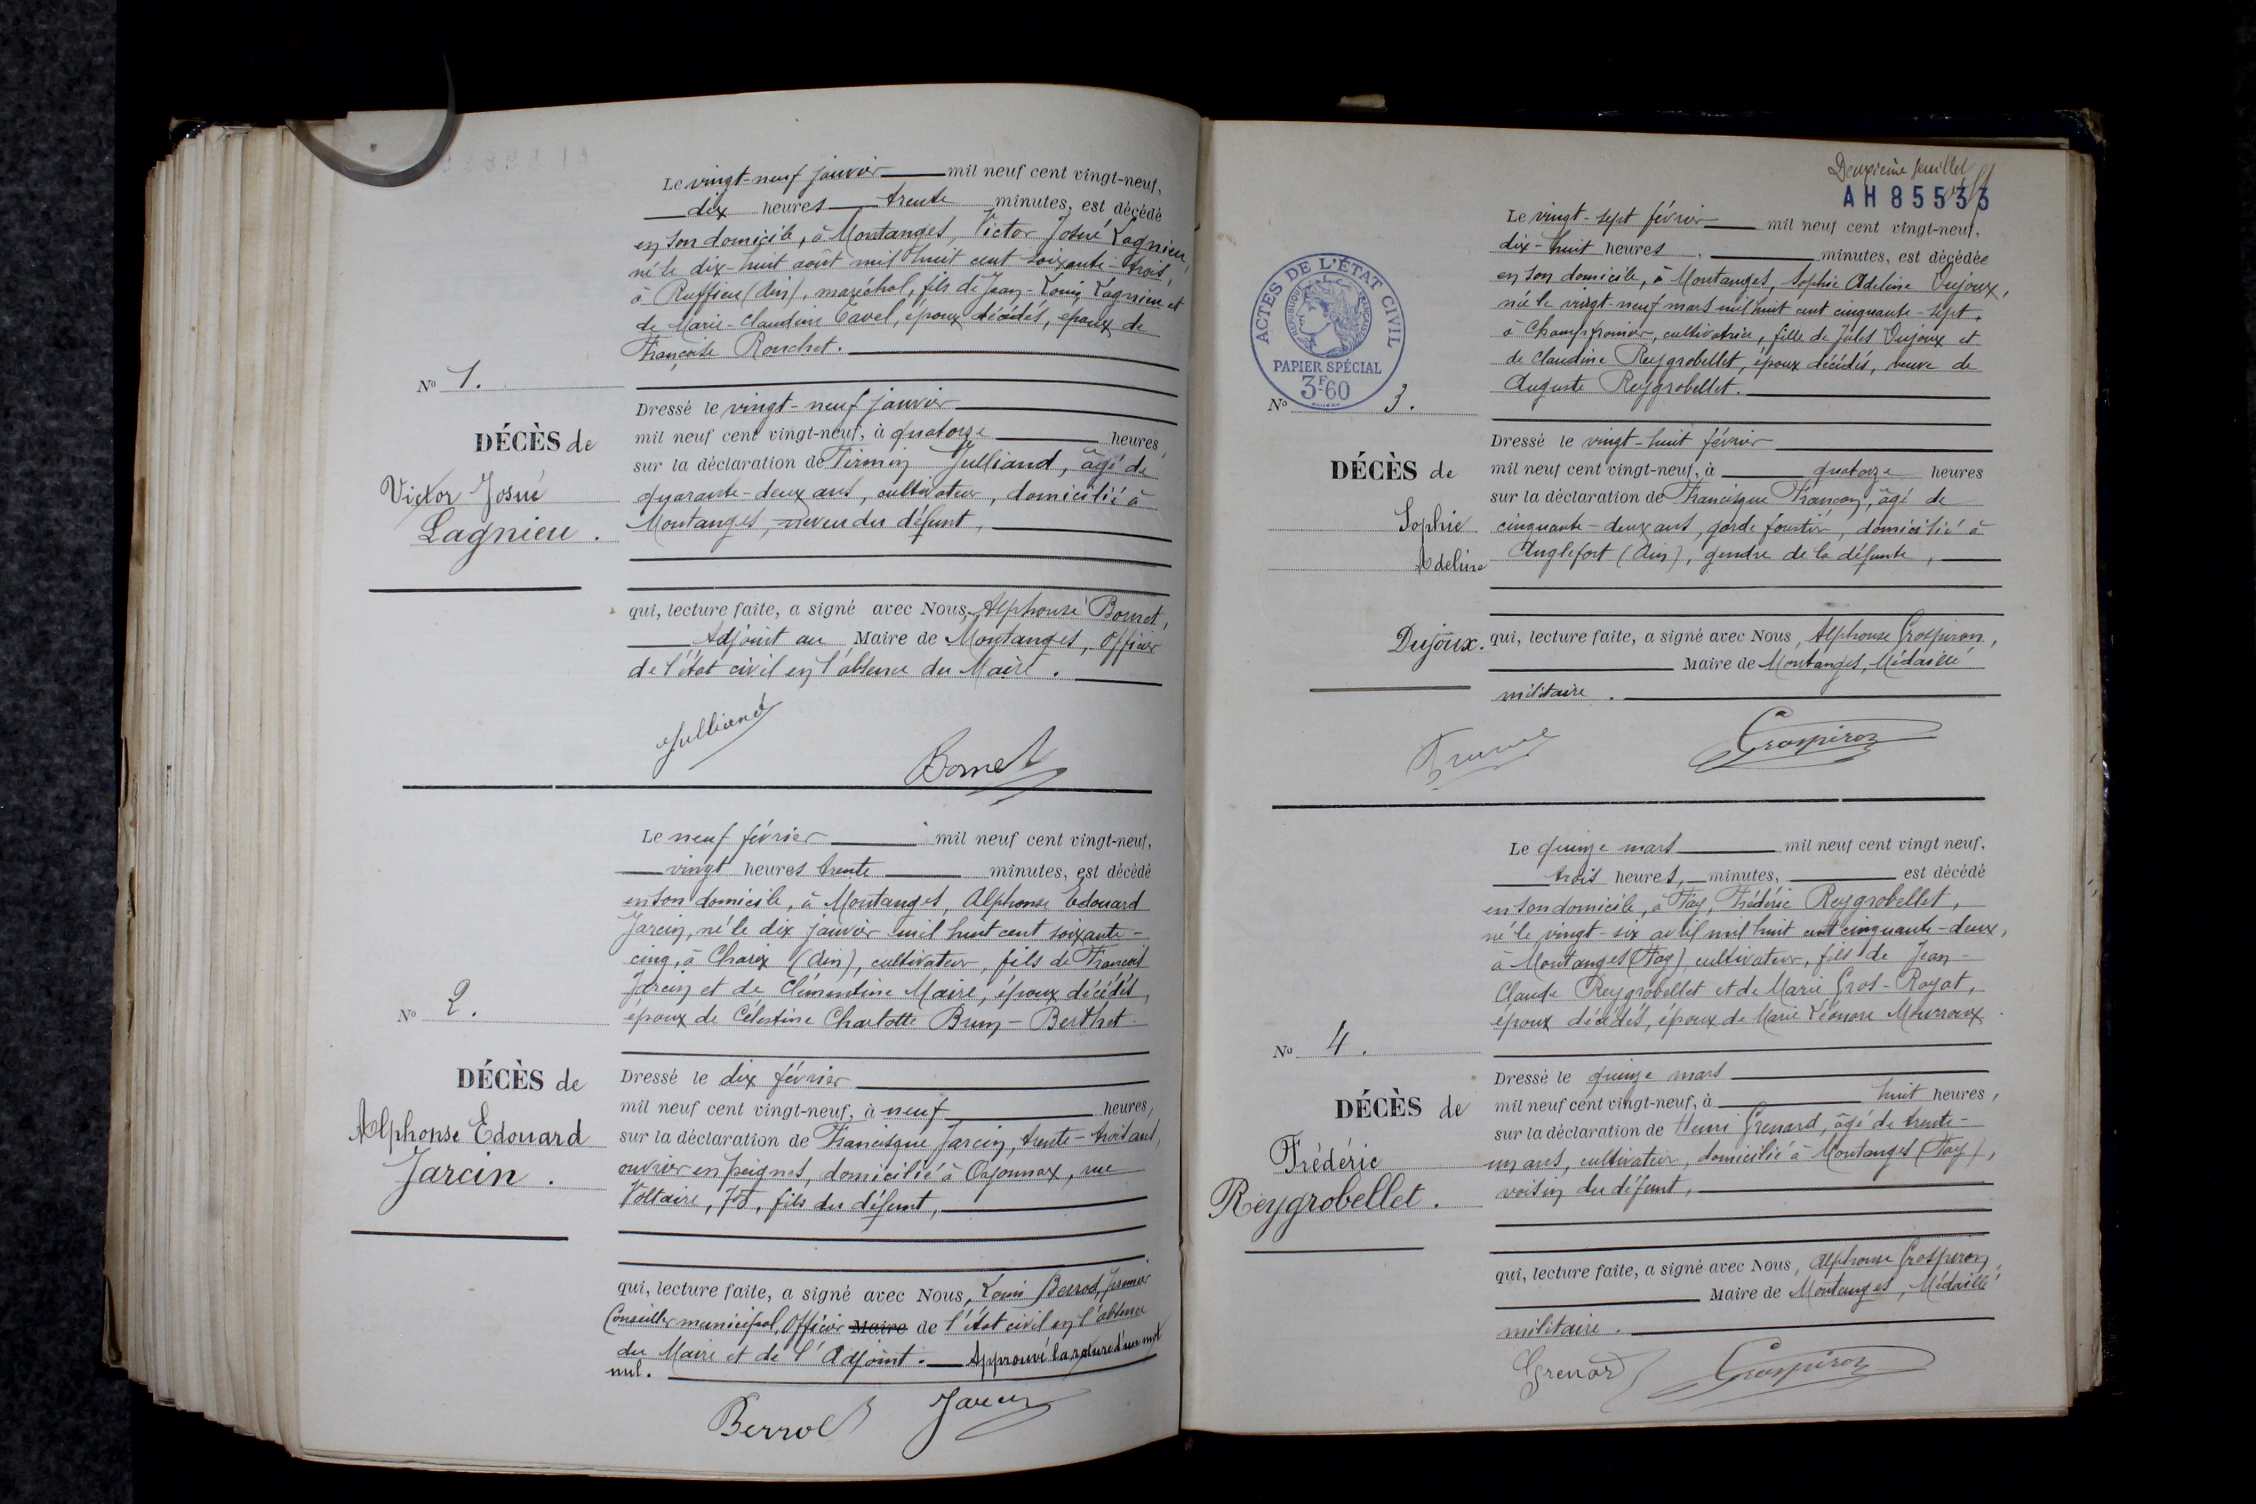 Le vingt-neuf janvier mil neuf cent vingt-neuf,
dix heures trente minutes, est décédé
en son domicile, à Montanges, Victor Josué Lagnieu,
né le dix-huit aout mil huit cent soixante-trois,
à Ruffieu (Ain), maréchal, fils de Jean-Louis Lagnieu et
de Marie-Claudine Cavel, époux décédés, époux de
Françoise Ronchet.
No 1.
DÉCÈS de
Victor Josué
Lagnieu.
Dressé le vingt-neuf janvier
mil neuf cent vingt-neuf, à quatorze heures,
sur la déclaration de Firmin Julliand, âgé de
quarante-deux ans, cultivateur, domicilié à
Montanges, neveu du défunt,
qui, lecture faite, a signé avec Nous, Alphonse Bornet,
Adjoint au Maire de Montanges, Officier
de l'état civil en l'absence du Maire.
Julliand
Bornet
Le neuf février mil neuf cent vingt-neuf,
vingt heures trente minutes, est décédé
en son domicile, à Montanges, Alphonse Edouard
Jarcin, né le dix janvier mil huit cent soixante-
cinq, à Charix (Ain), cultivateur, fils de François
Jarcin et de Clémentine Maire, époux décédés,
époux de Célestine Charlotte Brun-Berthet
No 2.
DÉCÈS de
Alphonse Edouard
Jarcin.
Dressé le dix février
mil neuf cent vingt-neuf, à neuf heures,
sur la déclaration de Francisque Jarcin, trente-trois ans,
ouvrier en peignes, domicilié à Oyonnax, rue
Voltaire, fils du défunt,
qui, lecture faite, a signé avec Nous, Louis Berrod, premier
Conseiller municipal, Officier Maire de l'état civil en l'absence
du Maire et de l'Adjoint. Approuvé la rature d'un mot
nul.
Berrod
Jarcin
Deuxième feuillet
AH 85533
Le vingt-sept février mil neuf cent vingt-neuf,
dix-huit heures minutes, est décédée
en son domicile, à Montanges, Sophie Adeline Dujoux,
née le vingt-neuf mars mil huit cent cinquante-sept,
à Champfromier, cultivatrice, fille de Jules Dujoux et
de Claudine Reygrobellet, époux décédés, veuve de
Auguste Reygrobellet.
ACTES DE L'ÉTAT CIVIL
RÉPUBLIQUE FRANÇAISE
PAPIER SPÉCIAL
3F60
No 3.
DÉCÈS de
Sophie
Adeline
Dujoux.
Dressé le vingt-huit février
mil neuf cent vingt-neuf, à quatorze heures
sur la déclaration de Francisque Françon, âgé de
cinquante-deux ans, garde forestier, domicilié à
Anglefort (Ain), gendre de la défunte,
qui, lecture faite, a signé avec Nous, Alphonse Grospiron,
Maire de Montanges, Médaillé
militaire.
Grospiron
Le quinze mars mil neuf cent vingt neuf,
trois heures, minutes, est décédé
en son domicile, à Fay, Frédéric Reygrobellet,
né le vingt-six avril mil huit cent cinquante-deux,
à Montanges (Fay), cultivateur, fils de Jean-
Claude Reygrobellet et de Marie Gros-Royat,
époux décédés, époux de Marie Léonore Mourroux.
No 4.
DÉCÈS de
Frédéric
Reygrobellet.
Dressé le quinze mars
mil neuf cent vingt-neuf, à huit heures,
sur la déclaration de Henri Grenard, âgé de trente-
un ans, cultivateur, domicilié à Montanges (Fay),
voisin du défunt,
qui, lecture faite, a signé avec Nous, Alphonse Grospiron,
Maire de Montanges, Médaillé
militaire.
Grenard
Grospiron